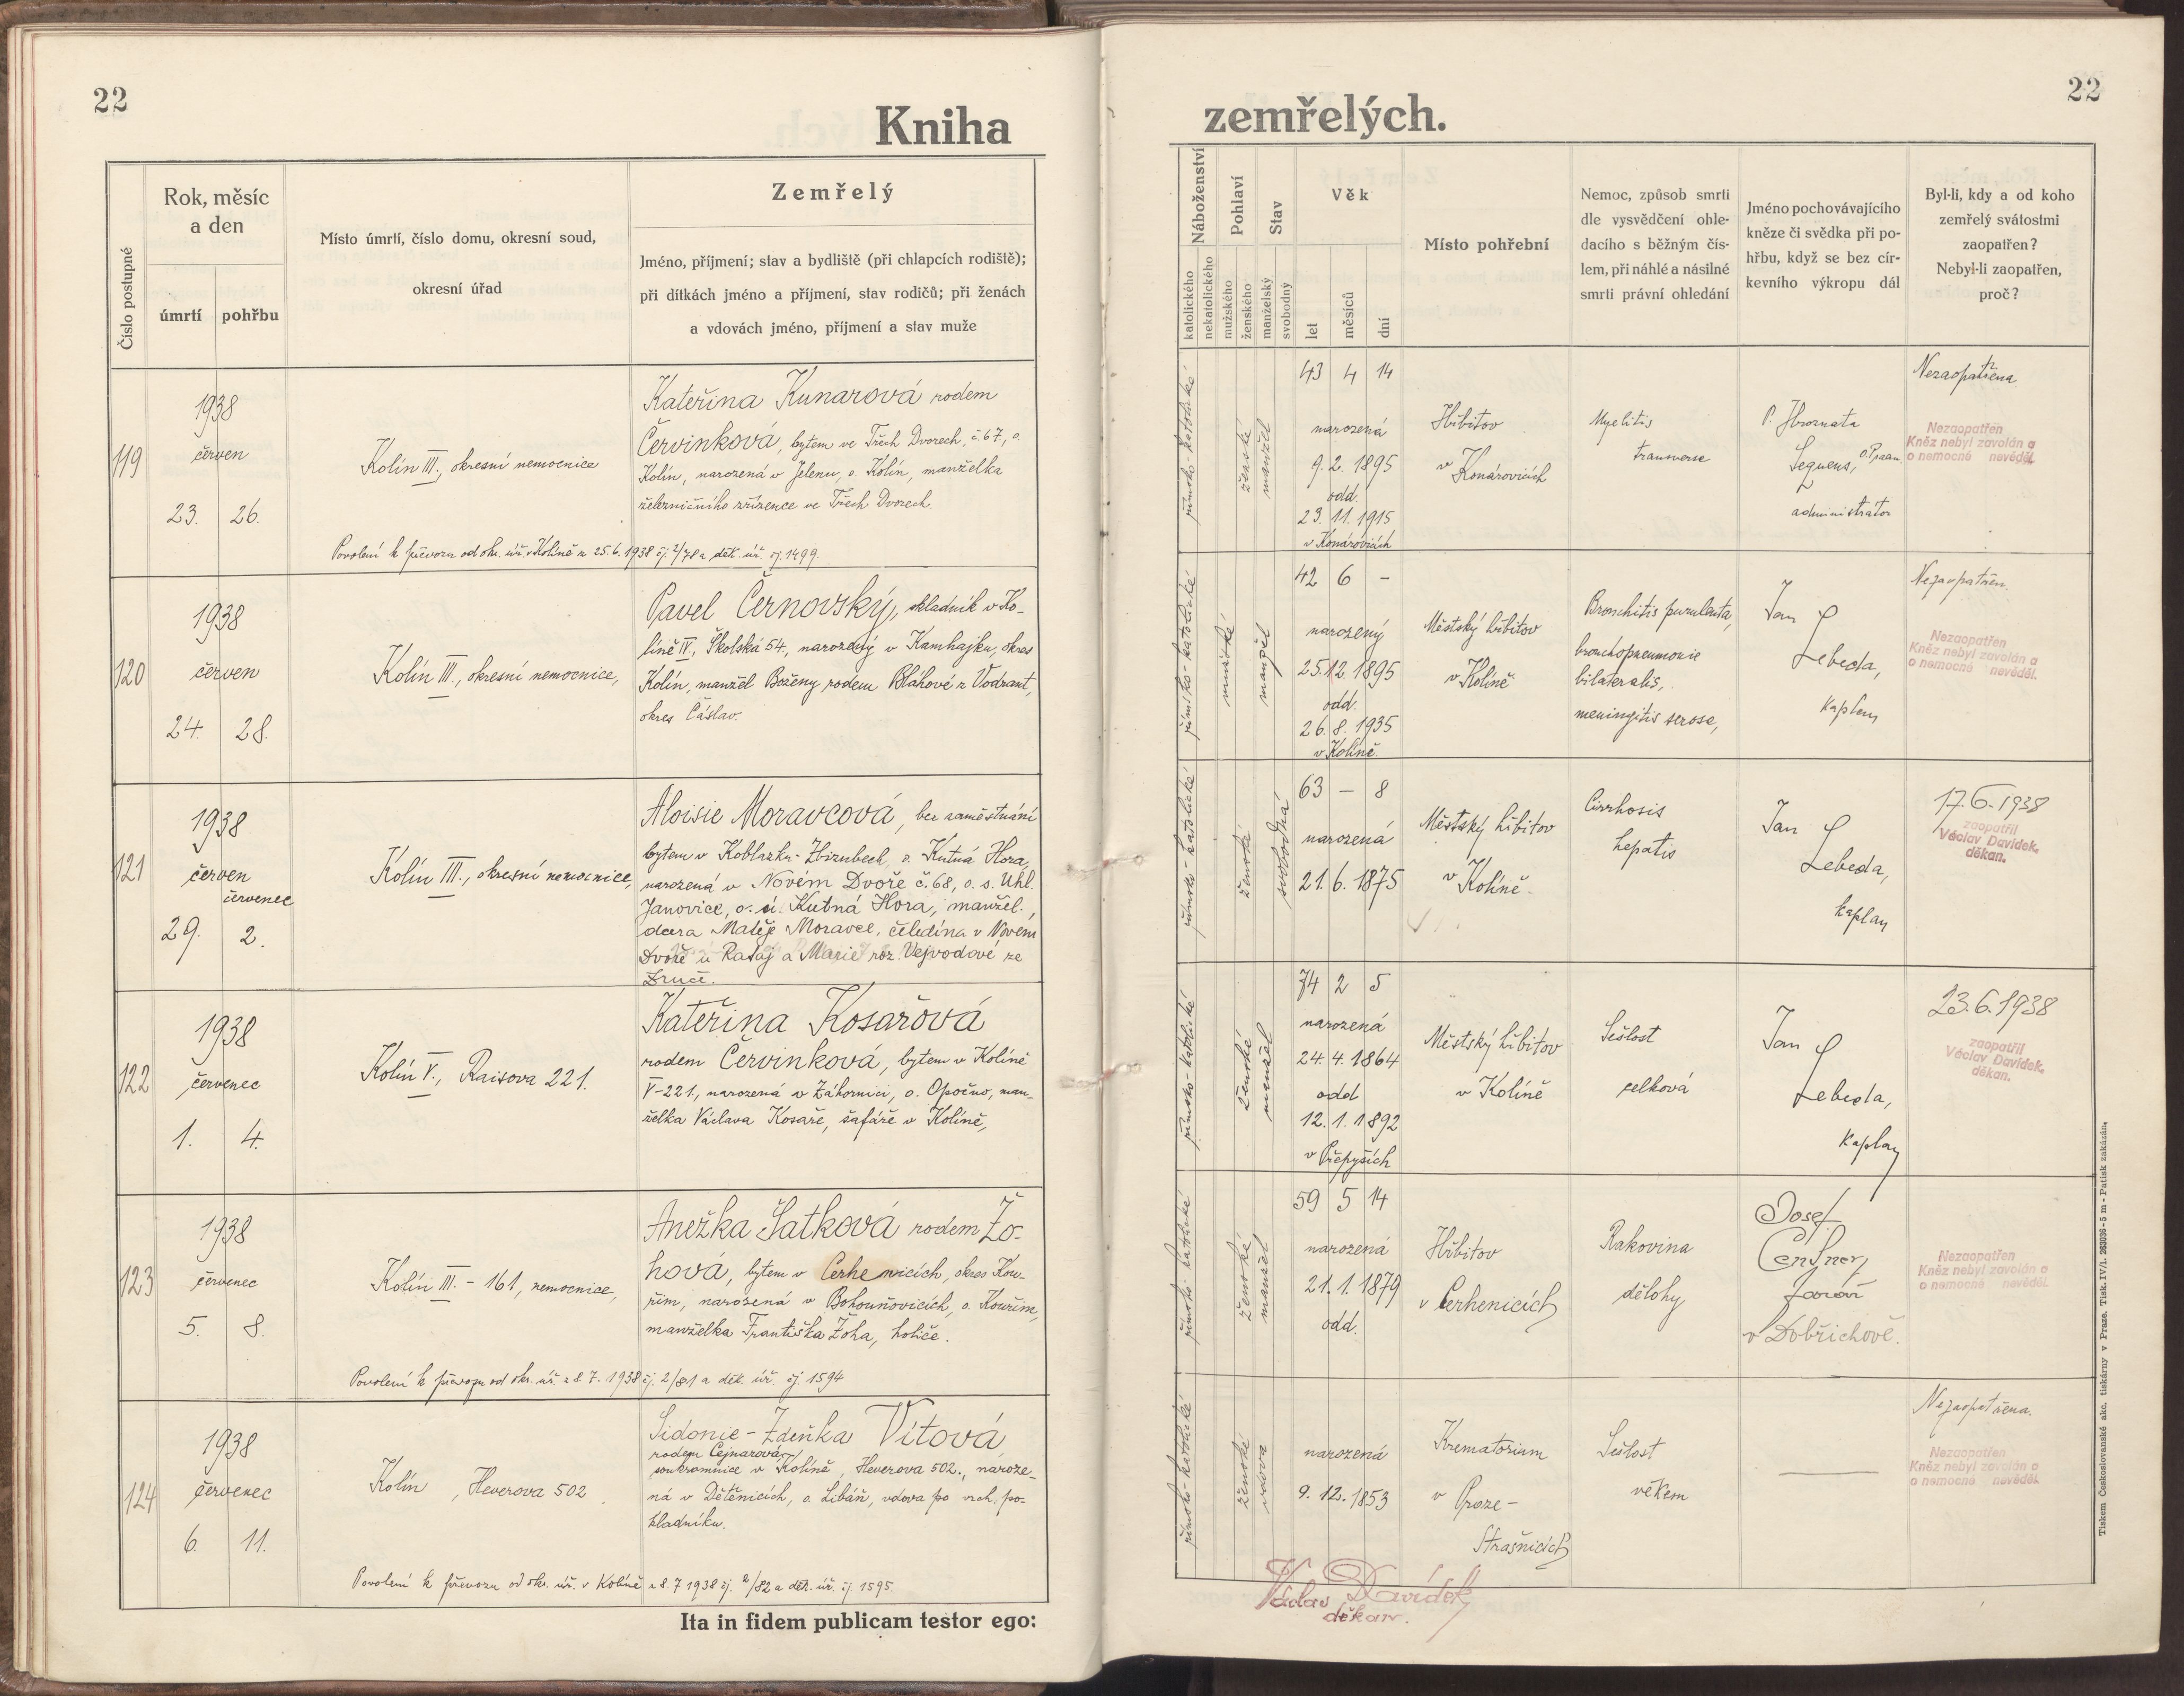 22
Kniha
Číslo postupné
Rok, měsíc
a den
úmrtí
pohřbu
Místo úmrtí, číslo domu, okresní soud,
okresní úřad
Zemřelý
Jméno, příjmení; stav a bydliště (při chlapcích rodiště);
při dítkách jméno a příjmení, stav rodičů; při ženách
a vdovách jméno, příjmení a stav muže
119
1938
červen
23. 26.
Kolín III., okresní nemocnice
Kateřina Kunarová rodem
Červinková, bytem ve Třech Dvorech, č. 67, o.
Kolín, narozená v Jelenu, o. Kolín, manželka
železničního zřízence ve Třech Dvorech.
Povolení k převozu od okr. úř. v Kolíně z 25. 6. 1938 čj. 2/78 a děk. úř. čj. 1499.
120
1938
červen
24. 28.
Kolín III., okresní nemocnice,
Pavel Černovský, skladník v Ko-
líně IV, Školská 54, narozený v Kamhajku, okres
Kolín, manžel Boženy rodem Bláhové z Vodrant,
okres Čáslav.
121
1938
červen
červenec
29. 2.
Kolín III., okresní nemocnice,
Aloisie Moravcová, bez zaměstnání
bytem v Koblasku-Zbizubech, o. Kutná Hora,
narozená v Novém Dvoře č. 68, o. s. Uhl.
Janovice, o. ú. Kutná Hora, manžel.
dcera Matěje Moravce, čeledína v Novém
Dvoře u Rataj a Marie roz. Vejvodové ze
Zruče.
122
1938
červenec
1. 4.
Kolín V., Raisova 221.
Kateřina Kosařová
rodem Červinková, bytem v Kolíně
V-221., narozená v Záhornici, o. Opočno, man-
želka Václava Kosaře, šafáře v Kolíně,
123
1938
červenec
5. 8.
Kolín III. - 161, nemocnice,
Anežka Šatková rodem Žo-
hová, bytem v Cerhenicích, okres Kou-
řim, narozená v Bohouňovicích, o. Kouřim,
manželka Františka Žoha, holiče.
Povolení k převozu od okr. úř. z 8. 7. 1938 čj. 2/81 a děk. úř. čj. 1594
124
1938
červenec
6. 11.
Kolín, Heverova 502
Sidonie-Zdeňka Vítová
rodem Cejnarová
soukromnice v Kolíně, Heverova 502., naroze-
ná v Dětěnicích, o. Libáň, vdova po vrch. po-
kladníku.
Povolení k převozu od okr. úř. v Kolíně z 8. 7 1938 čj. 2/82 a děk. úř. čj. 1595.
Ita in fidem publicam testor ego:
22
zemřelých.
Náboženství
katolického
nekatolického
Pohlaví
mužského
ženského
Stav
manželský
svobodný
Věk
let
měsíců
dní
Místo pohřební
Nemoc, způsob smrti
dle vysvědčení ohle-
dacího s běžným čís-
lem, při náhlé a násilné
smrti právní ohledání
Jméno pochovávajícího
kněze či svědka při po-
hřbu, když se bez cír-
kevního výkropu dál
Byl-li, kdy a od koho
zemřelý svátostmi
zaopatřen?
Nebyl-li zaopatřen,
proč?
římsko-katolické
ženské
manžel
43 4 14
narozená
9. 2. 1895
odd.
23. 11. 1915
v Konárovicích
Hřbitov
v Konárovicích
Myelitis
transverse
P. Hroznata
Sequens, O. Praem.
administrátor
Nezaopatřena
Nezaopatřen
Kněz nebyl zavolán a
o nemocné nevěděl.
římsko-katolické
mužské
manžel
42 6 -
narozený
25. 12. 1895
odd.
26. 8. 1935
v Kolíně.
Městský hřbitov
v Kolíně
Bronchitis purulenta,
bronchopneumonie
bilateralis,
meningitis serosa,
Jan
Lebeda,
kaplan
Nezaopatřen.
Nezaopatřen
Kněz nebyl zavolán a
o nemocné nevěděl.
římsko-katolické
ženské
svobodná
63 - 8
narozená
21. 6. 1875
Městský hřbitov
v Kolíně.
Cirrhosis
hepatis
Jan
Lebeda,
kaplan
17. 6. 1938
zaopatřil
Václav Davídek,
děkan.
římsko-katolické
ženské
manžel
74 2 5
narozená
24. 4. 1864
odd
12. 1. 1892
v Přepyších
Městský hřbitov
v Kolíně
Sešlost
celková
Jan
Lebeda,
kaplan
23. 6. 1938
zaopatřil
Václav Davídek,
děkan.
římsko-katolické
ženské
manžel
59 5 14
narozená
21. 1. 1879
odd.
Hřbitov
v Cerhenicích
Rakovina
dělohy
Josef
farář
v Dobřichově.
Nezaopatřen
Kněz nebyl zavolán a
o nemocné nevěděl.
římsko-katolické
ženské
vdova
narozená
9. 12. 1853
Krematorium
v Praze-
Strašnicích
Sešlost
věkem
Nezaopatřena.
Nezaopatřen
Kněz nebyl zavolán a
o nemocné nevěděl.
Václav Davídek
děkan.
Tiskem Československé akc. tiskárny v Praze. Tisk. IV/1. 263036-5 m - Patisk zakázán.